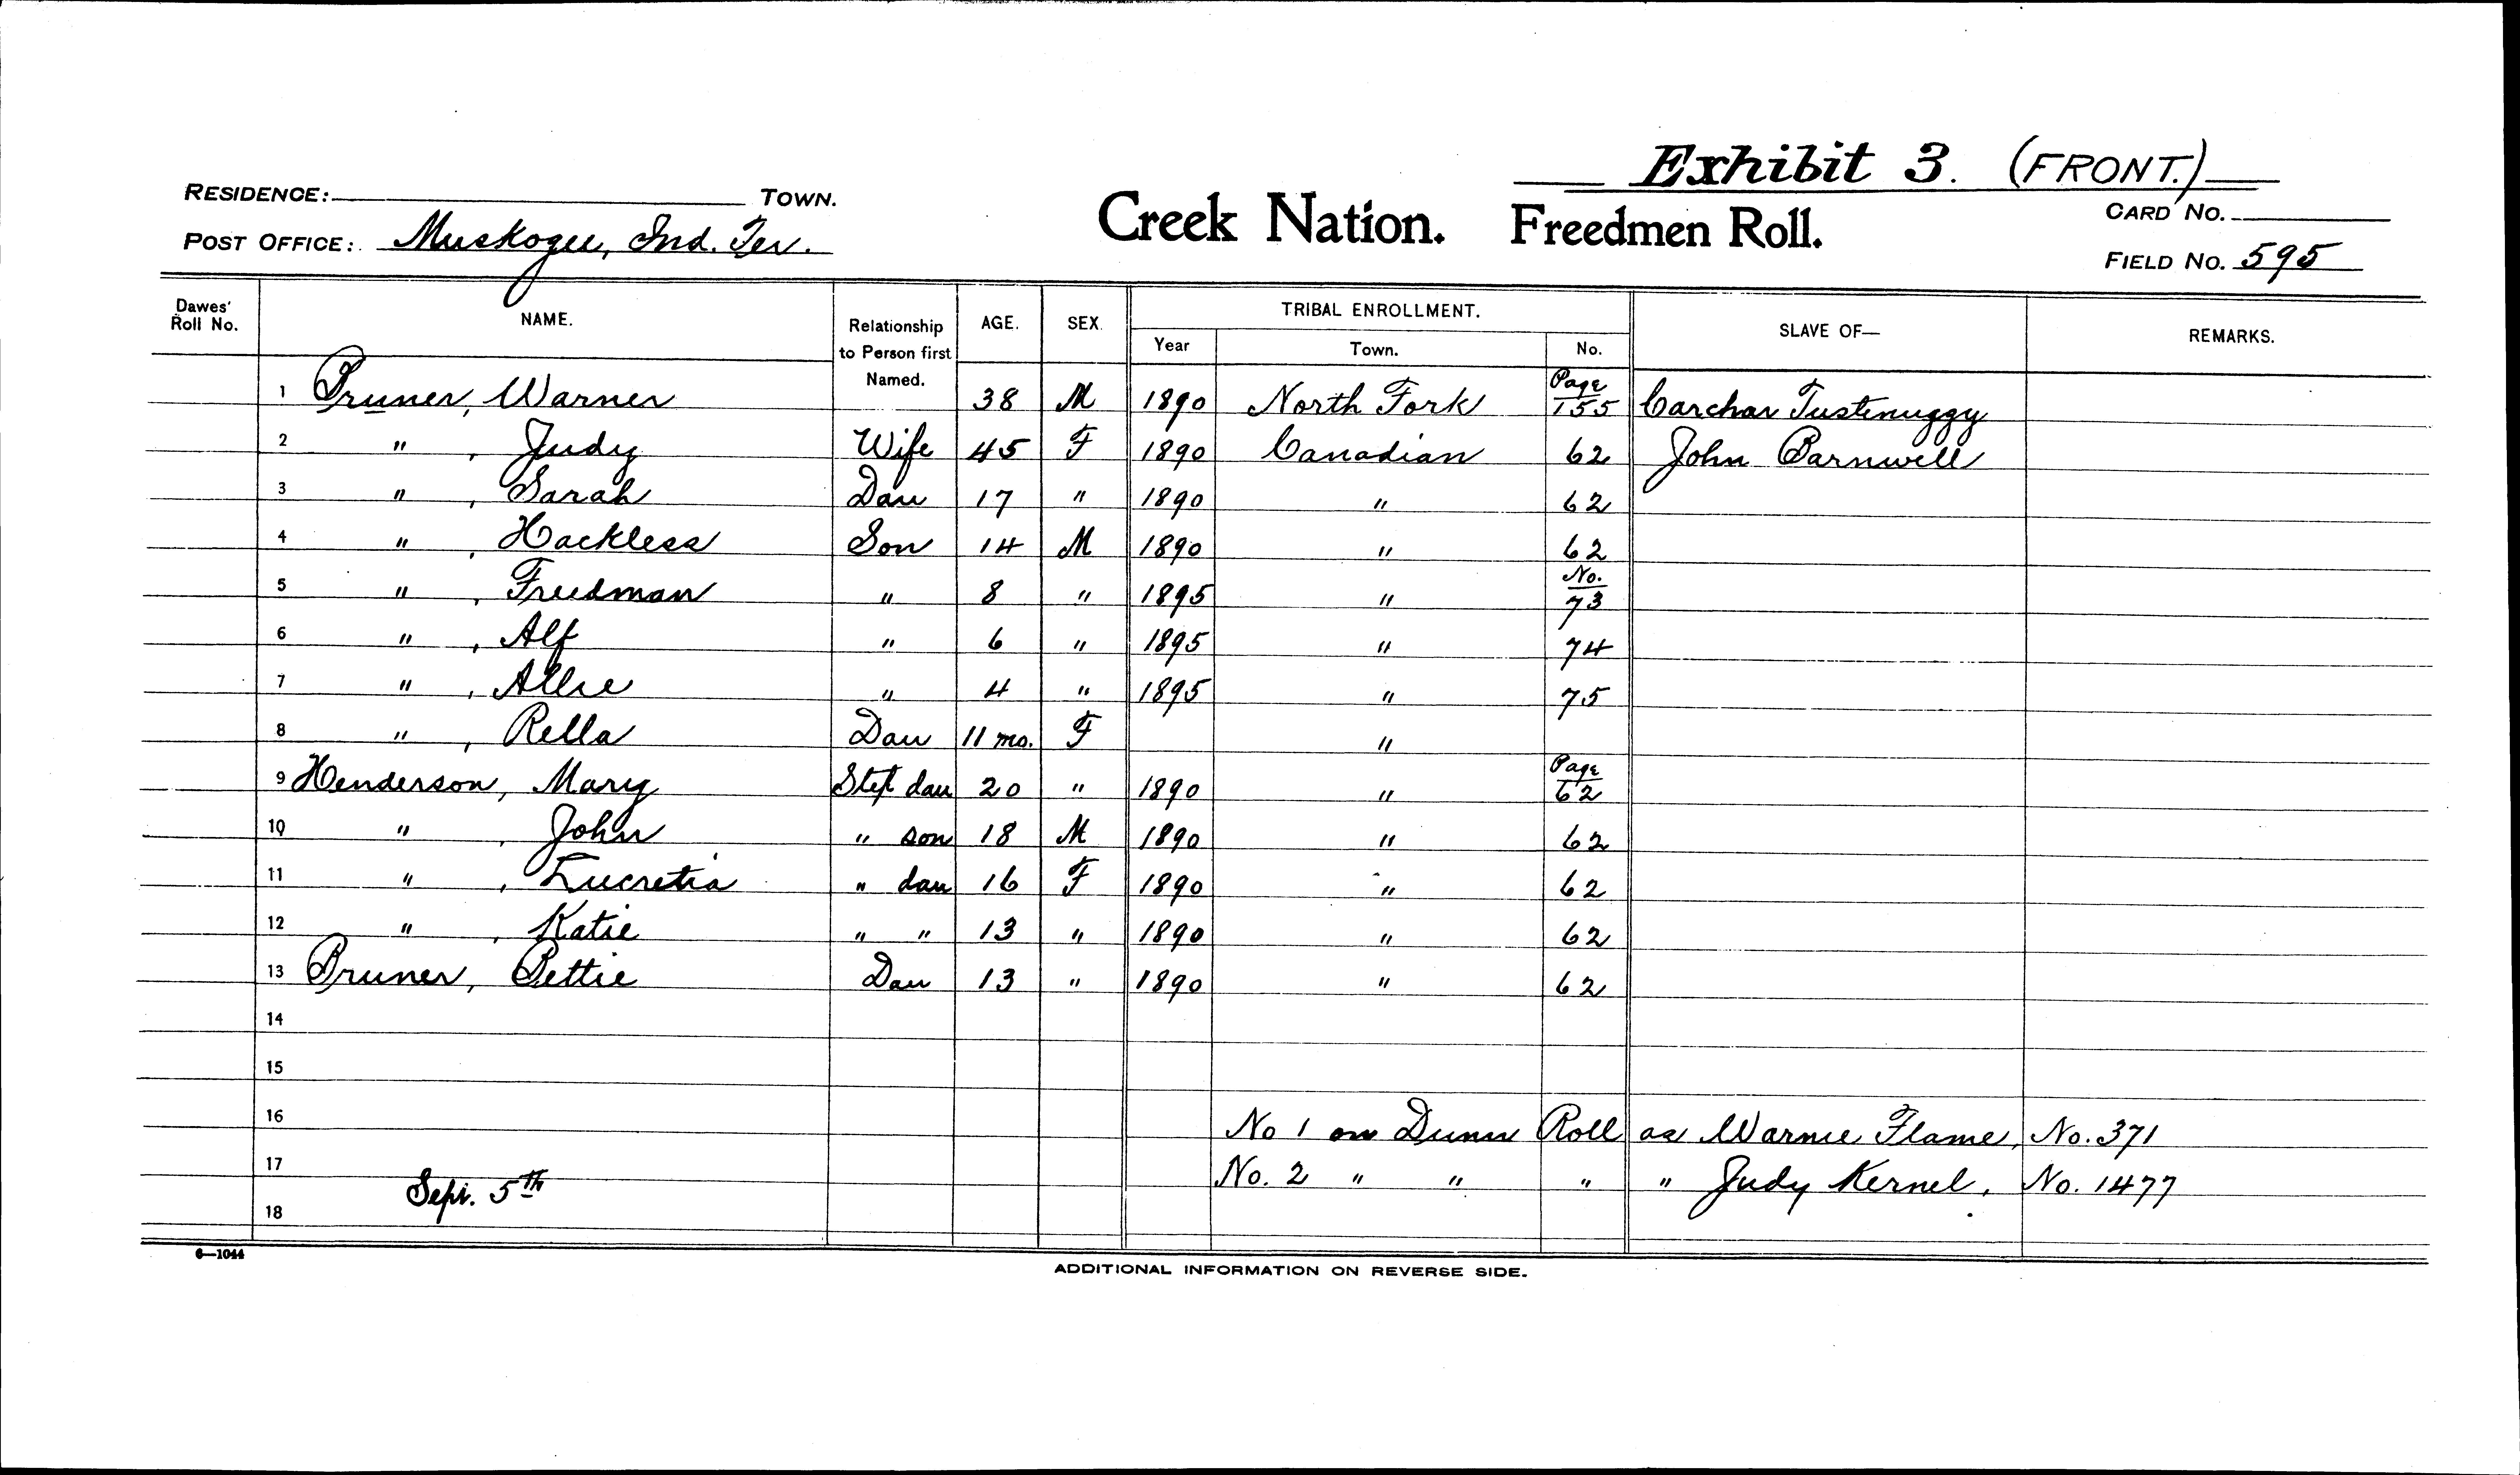 Exhibit 3. (FRONT.)
RESIDENCE: TOWN.
Creek Nation. Freedmen Roll.
CARD NO.
POST OFFICE: Muskogee, Ind. Ter.
FIELD NO. 595
Dawes' Roll No. NAME. Relationship to Person first Named. AGE. SEX. TRIBAL ENROLLMENT. SLAVE OF— REMARKS.
Year Town. No.
1 Pruner, Warner 38 M 1890 North Fork Page 155 Carchar Tustenuggy
2 " , Judy Wife 45 F 1890 Canadian 62 John Barnwell
3 " , Sarah Dau 17 " 1890 " 62
4 " , Hackless Son 14 M 1890 " 62
5 " , Freedman " 8 " 1895 " No. 73
6 " , Alf " 6 " 1895 " 74
7 " , Allie " 4 " 1895 " 75
8 " , Rella Dau 11 mo. F "
9 Henderson, Mary Step dau 20 " 1890 " Page 62
10 " , John " son 18 M 1890 " 62
11 " , Lucretia " dau 16 F 1890 " 62
12 " , Katie " " 13 " 1890 " 62
13 Pruner, Bettie Dau 13 " 1890 " 62
14
15
16 No 1 on Dunn Roll as Warnie Flame, No. 371
17 No. 2 " " " " Judy Kernel, No. 1477
Sept. 5th
18
6—1044
ADDITIONAL INFORMATION ON REVERSE SIDE.